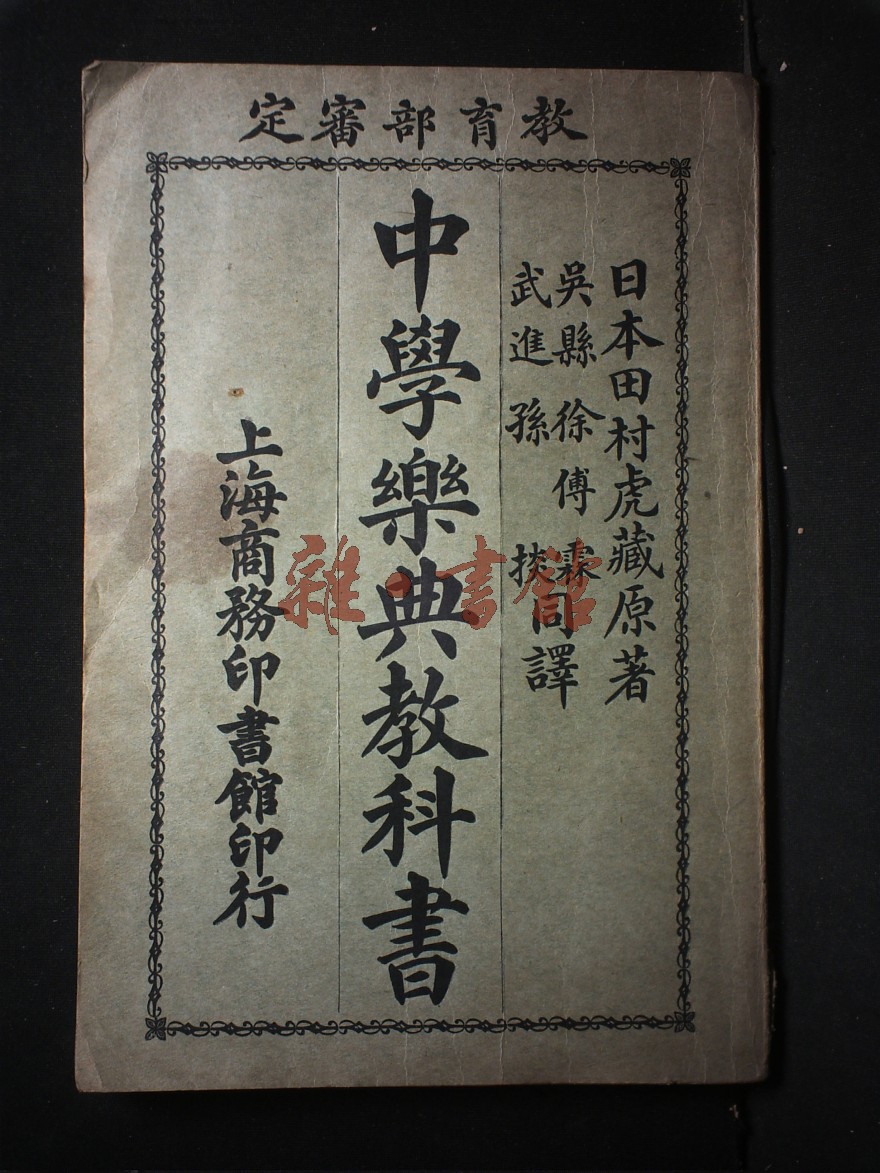 教育部審定
日本田村虎藏原著
吳縣徐傅霖
武進孫掞
同譯
中學樂典教科書
上海商務印書館印行
雜·書館